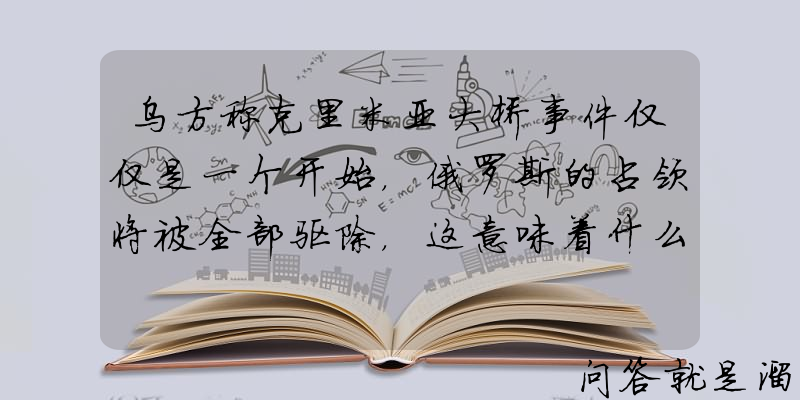 乌方称克里米亚大桥事件仅
仅是一个开始，俄罗斯的占领
将被全部驱除，这意味着什么
E=mc²
问答就是溜